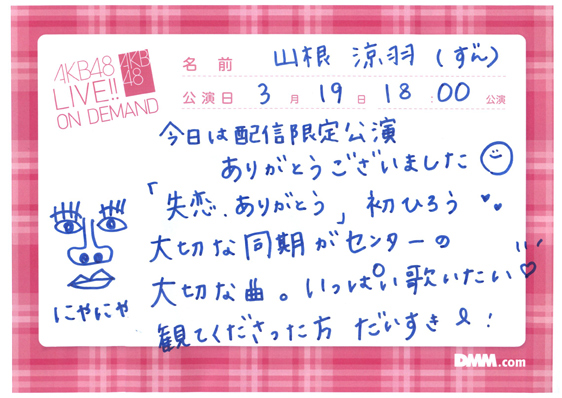 AKB48
LIVE!!
ON DEMAND
AKB
48
名前 山根 涼羽 (ずん)
公演日 3月 19日 18:00 公演
今日は配信限定公演
ありがとうございました
「失恋、ありがとう」 初ひろう
大切な同期がセンターの
大切な曲。いっぱい歌いたい♡
観てくださった方 だいすき!
にやにや
DMM.com